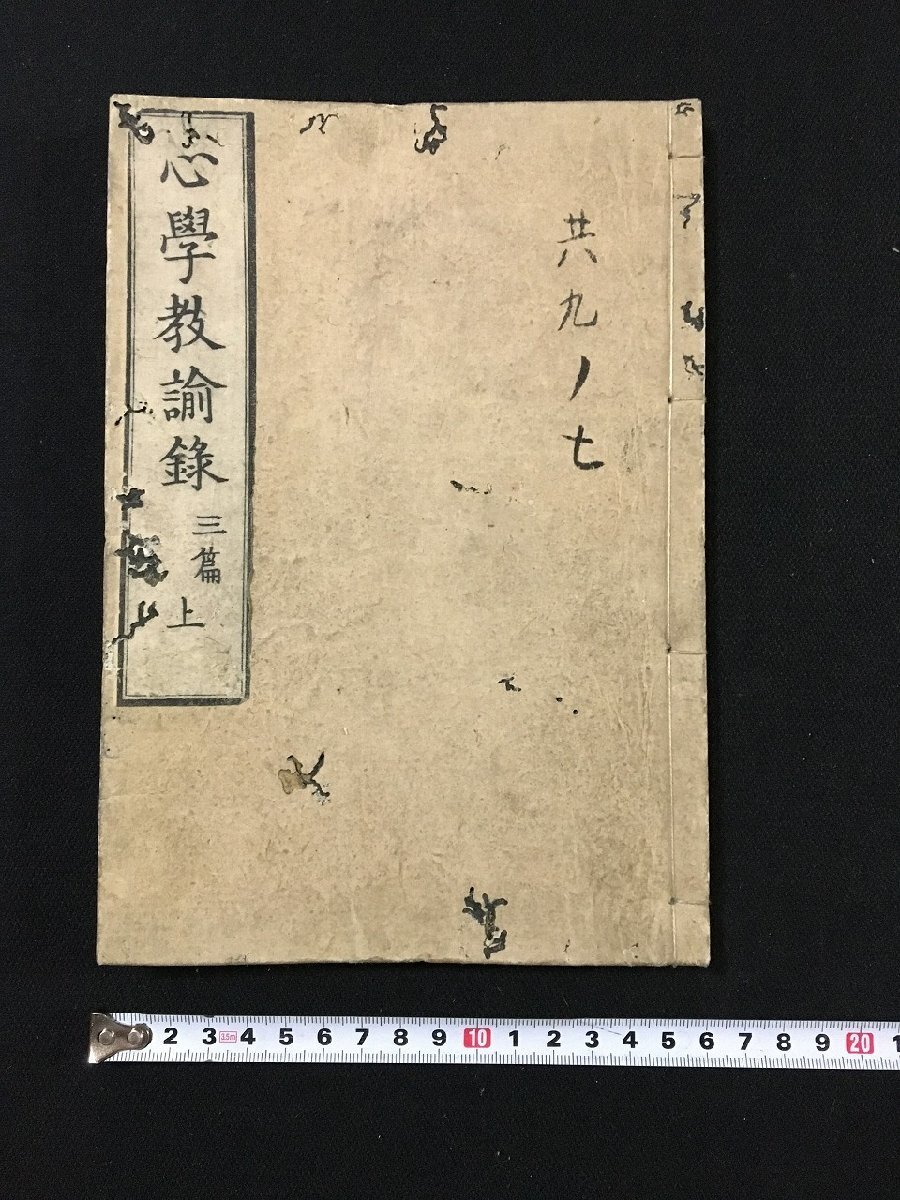 共九ノ七
心學教諭錄 三篇 上
2 3 3.5m 4 5 6 7 8 9 10 1 2 3 4 5 6 7 8 9 20 1